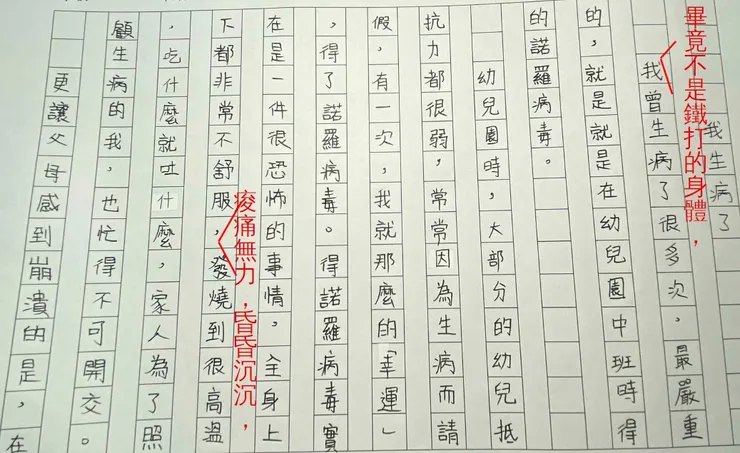 我生病了
畢竟不是鐵打的身體，
我曾生病了很多次，最嚴重
的，就是就是在幼兒園中班時得
的諾羅病毒。
幼兒園時，大部分的幼兒抵
抗力都很弱，常常因為生病而請
假，有一次，我就那麼的「幸運」
，得了諾羅病毒。得諾羅病毒實
在是一件很恐怖的事情，全身上
痠痛無力，昏昏沉沉，
下都非常不舒服，發燒到很高溫
，吃什麼就吐什麼，家人為了照
顧生病的我，也忙得不可開交。
更讓父母感到崩潰的是，在